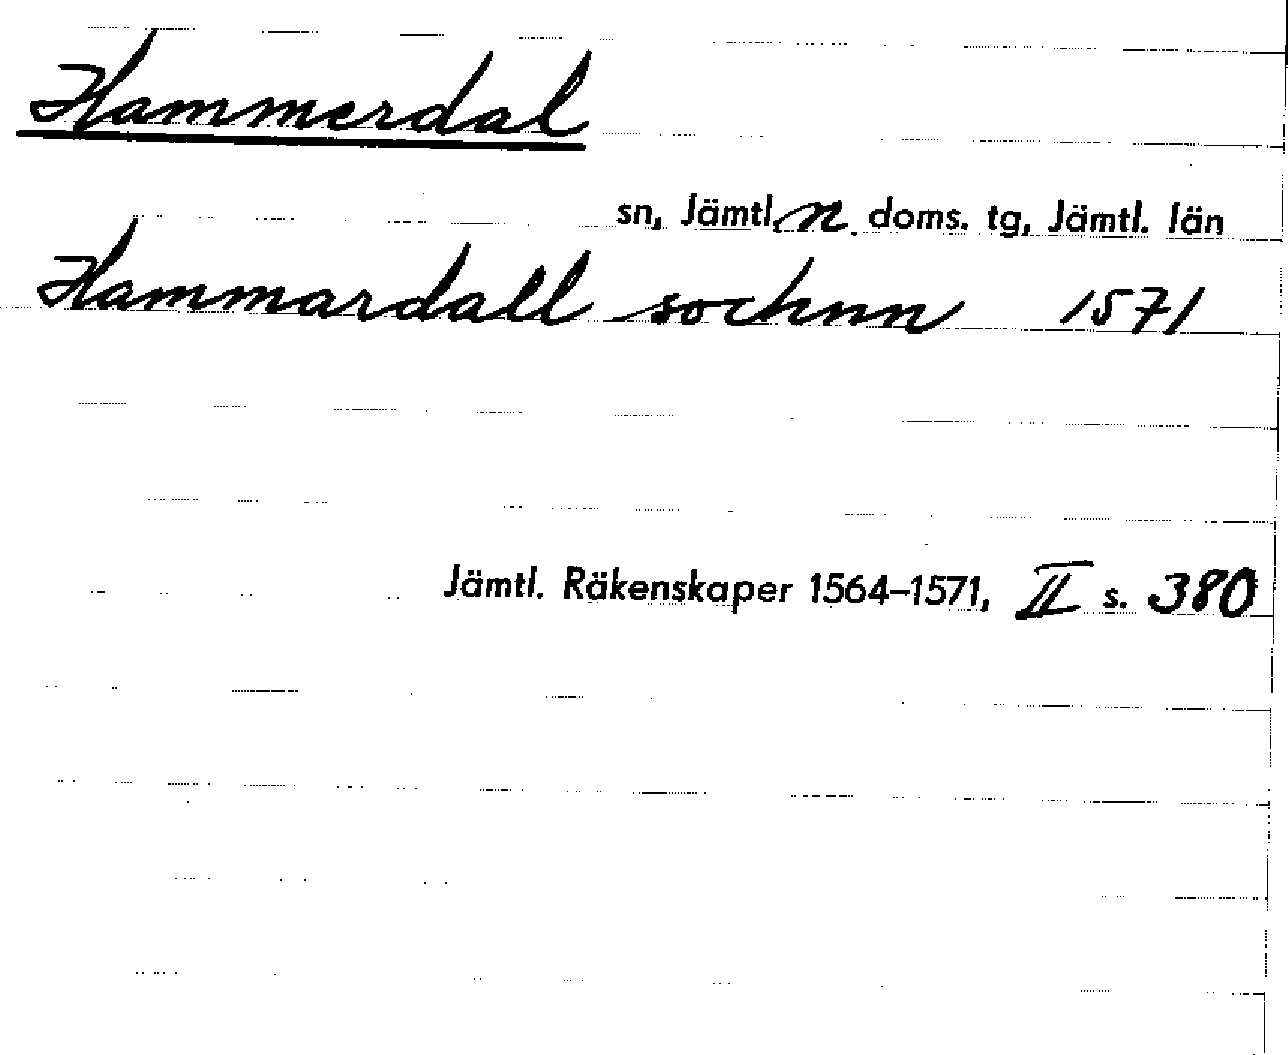 Hammerdal
sn, Jämtl. n. doms. tg, Jämtl. län
Hammardall sochnn 1571
Jämtl. Räkenskaper 1564–1571, II s. 380